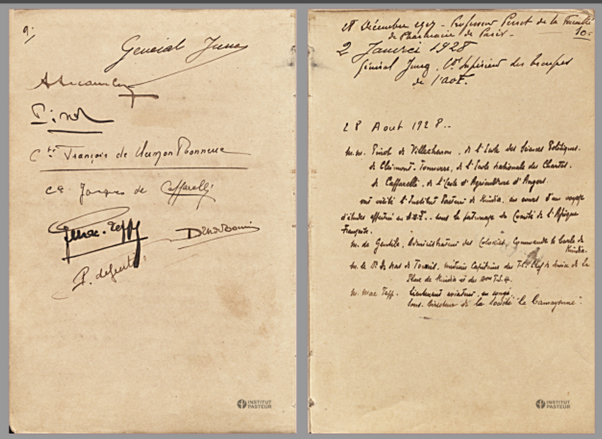 9.
Général Jung
Pinot
Cte François de Clermont Tonnerre
Cte Jacques de Caffarelli
INSTITUT
PASTEUR
28 Décembre 1927 - Professeur Perrot de la Faculté
de Pharmacie de Paris -
10.
2 Janvier 1928
Général Jung, Ct Supérieur des troupes
de l'AOF.
28 Août 1928 -
M.M. Pinot de Villechenon, de l'Ecole des Sciences Politiques.
de Clermont-Tonnerre, de l'Ecole nationale des Chartes.
de Caffarelli, de l'Ecole d'Agriculture d'Angers
ont visité l'Institut Pasteur de Kindia, au cours d'un voyage
d'études effectué en AOF. sous le patronage du Comité de l'Afrique
Française.
M. de Gentile, Administrateur des Colonies, Commandant le Cercle de
Kindia.
M. le Dr médecin Capitaine des T.C. Chef de Service de la
Place de Kindia et du T.S.
M. Mac Teff. Lieutenant aviateur, en congé
Directeur de la Société la Camayenne.
INSTITUT
PASTEUR